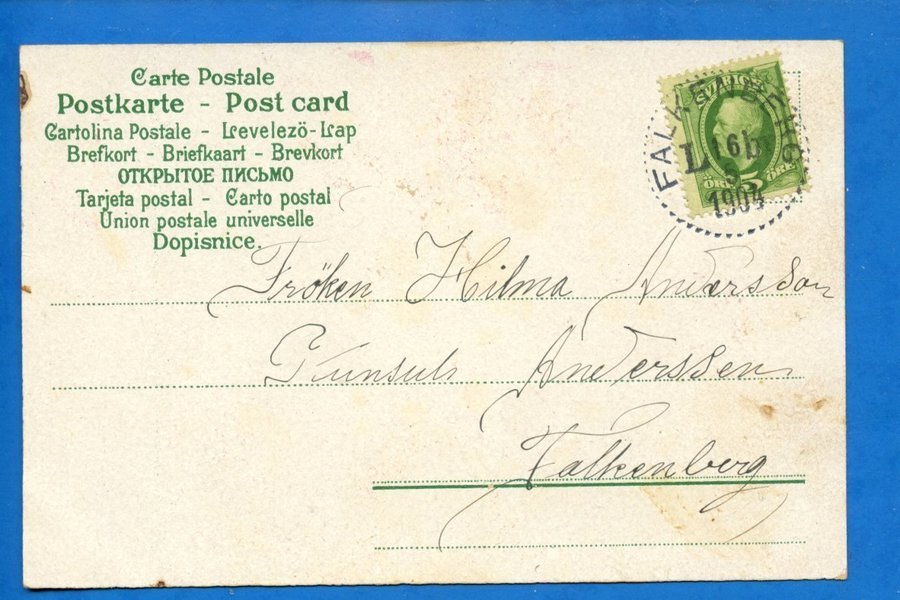 Carte Postale
Postkarte - Post card
Cartolina Postale - Levelezö-Lap
Brefkort - Briefkaart - Brevkort
ОТКРЫТОЕ ПИСЬМО
Tarjeta postal - Carto postal
Union postale universelle
Dopisnice.
SVERIGE
FALKENBERG
L 6 b
5
1904
ÖRE 5 ÖRE
Fröken Hilma Andersson
Konsul Anderssen
Falkenberg